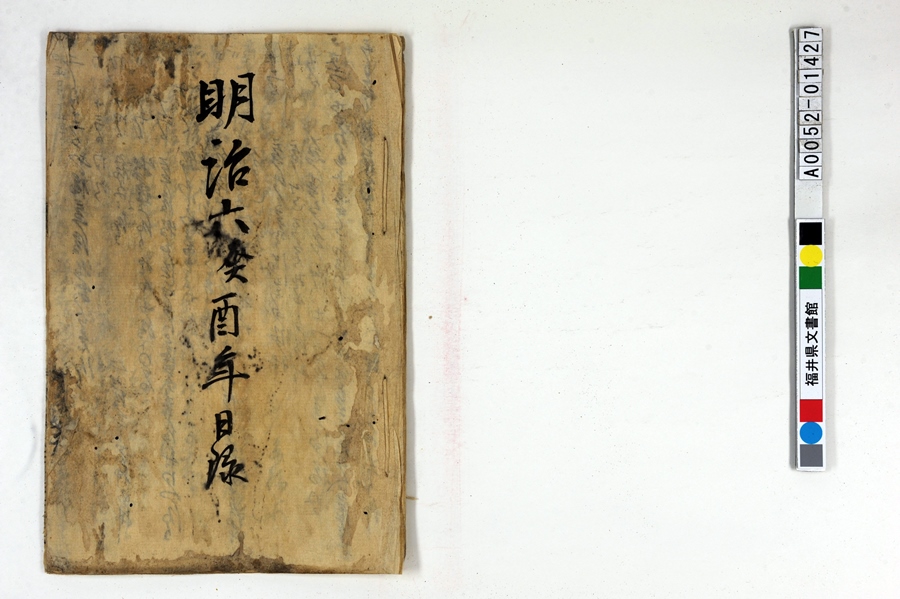 明治六癸酉年日録
A0052-01427
福井県文書館